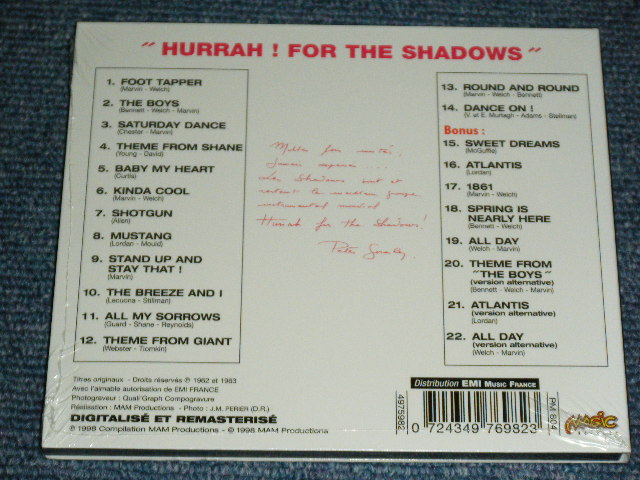 " HURRAH ! FOR THE SHADOWS "
1. FOOT TAPPER
(Marvin - Welch)
2. THE BOYS
(Bennett - Welch - Marvin)
3. SATURDAY DANCE
(Chester - Marvin)
4. THEME FROM SHANE
(Young - David)
5. BABY MY HEART
(Curtis)
6. KINDA COOL
(Marvin - Welch)
7. SHOTGUN
(Allen)
8. MUSTANG
(Lordan - Mould)
9. STAND UP AND
STAY THAT !
(Marvin)
10. THE BREEZE AND I
(Lecuona - Stillman)
11. ALL MY SORROWS
(Guard - Shane - Reynolds)
12. THEME FROM GIANT
(Webster - Tiomkin)
Les Shadows
instrumental
Hurrah for the Shadows !
Peter
13. ROUND AND ROUND
(Marvin - Welch - Bennett)
14. DANCE ON !
(V. et E. Murtagh - Adams - Stellman)
Bonus :
15. SWEET DREAMS
(McGuffie)
16. ATLANTIS
(Lordan)
17. 1861
(Marvin - Welch)
18. SPRING IS
NEARLY HERE
(Bennett - Welch)
19. ALL DAY
(Welch - Marvin)
20. THEME FROM
"THE BOYS"
(version alternative)
(Bennett - Welch - Marvin)
21. ATLANTIS
(version alternative)
(Lordan)
22. ALL DAY
(version alternative)
(Welch - Marvin)
Titres originaux - Droits réservés ℗ 1962 et 1963
Avec l'aimable autorisation de EMI FRANCE
Photograveur : Quali'Graph Compogravure
Réalisation : MAM Productions - Photo : J.M. PERIER (D.R.)
DIGITALISÉ ET REMASTERISÉ
℗ 1998 Compilation MAM Productions - © 1998 MAM Productions
Distribution EMI MUSIC FRANCE
4975982
0 724349 769823
PM 804
MAGIC